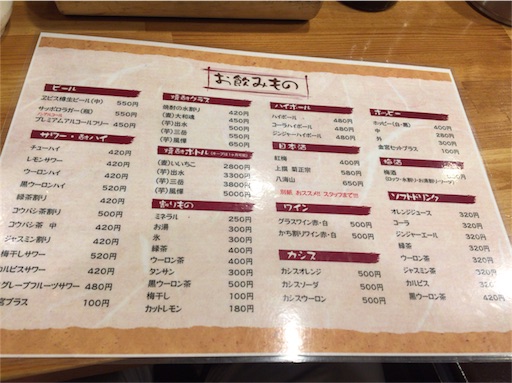 お飲みもの
ビール
ヱビス樽生ビール(中) 550円
サッポロラガー(瓶) 550円
ノンアルコール
プレミアムアルコールフリー 450円
サワー・酎ハイ
チューハイ 420円
レモンサワー 420円
ウーロンハイ 420円
黒ウーロンハイ
緑茶割り 420円
コウバシ茶割り
コウバシ茶 中 420円
ジャスミン割り 420円
梅干しサワー 520円
カルピスサワー 420円
グレープフルーツサワー 480円
プラス 100円
焼酎グラス
焼酎の水割り 420円
(麦)大和魂 450円
(芋)出水 500円
(芋)三岳 550円
(芋)風憚 650円
焼酎ボトル
(麦)いいちこ 2800円
(芋)出水 3300円
(芋)三岳 3800円
(芋)風憚
割りもの
ミネラル 250円
お湯 300円
氷 300円
緑茶 400円
ウーロン茶 400円
タンサン 300円
黒ウーロン茶 500円
梅干し 100円
カットレモン 180円
ハイボール
ハイボール 480円
コーラハイボール 480円
ジンジャーハイボール 480円
日本酒
紅梅 400円
上撰 菊正宗 580円
八海山 650円
別紙 おススメ!! スタッフまで!!
ワイン
グラスワイン赤・白 500円
かち割りワイン赤・白 500円
カシス
カシスオレンジ 500円
カシスソーダ 500円
カシスウーロン 500円
ホッピー
ホッピー(白・黒) 400円
中 300円
外 280円
金宮セットプラス 100円
梅酒
梅酒
(ロック・水割り・お湯割り・ソーダ)
ソフトドリンク
オレンジジュース 320円
コーラ 320円
ジンジャーエール 320円
緑茶 320円
ウーロン茶 320円
ジャスミン茶 320円
カルピス 320円
黒ウーロン茶 400円